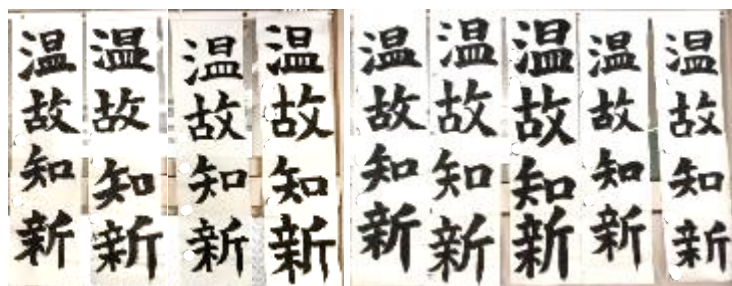 温故知新
温故知新
温故知新
温故知新
温故知新
温故知新
温故知新
温故知新
温故知新